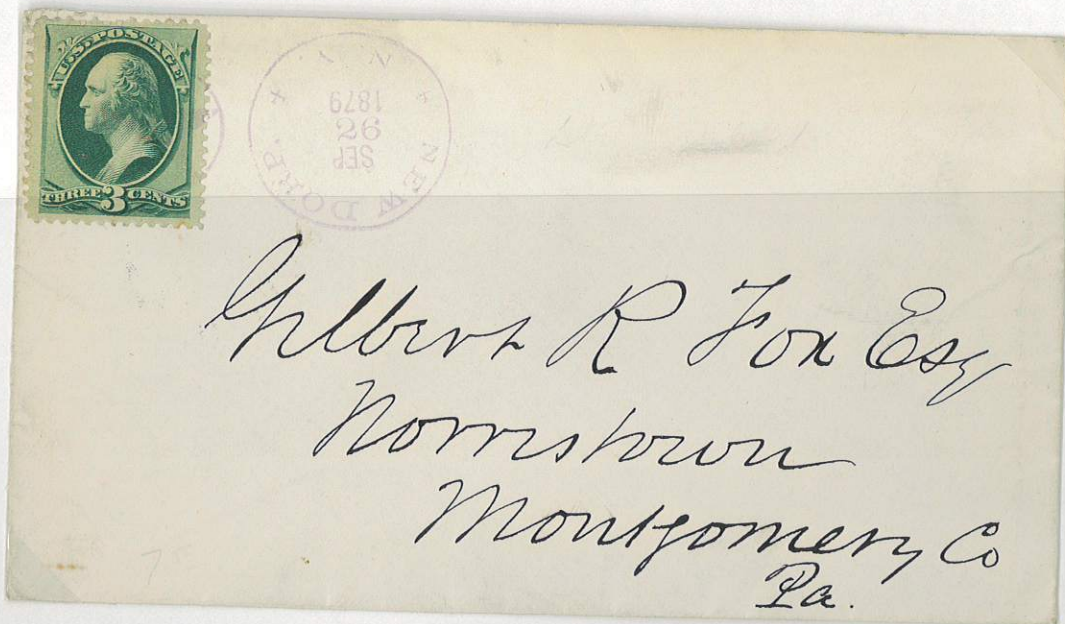 U.S. POSTAGE
THREE 3 CENTS
NEW DORP. N.Y.
SEP
26
1879
Gilbert R Fox Esq
Norristown
Montgomery Co
Pa.